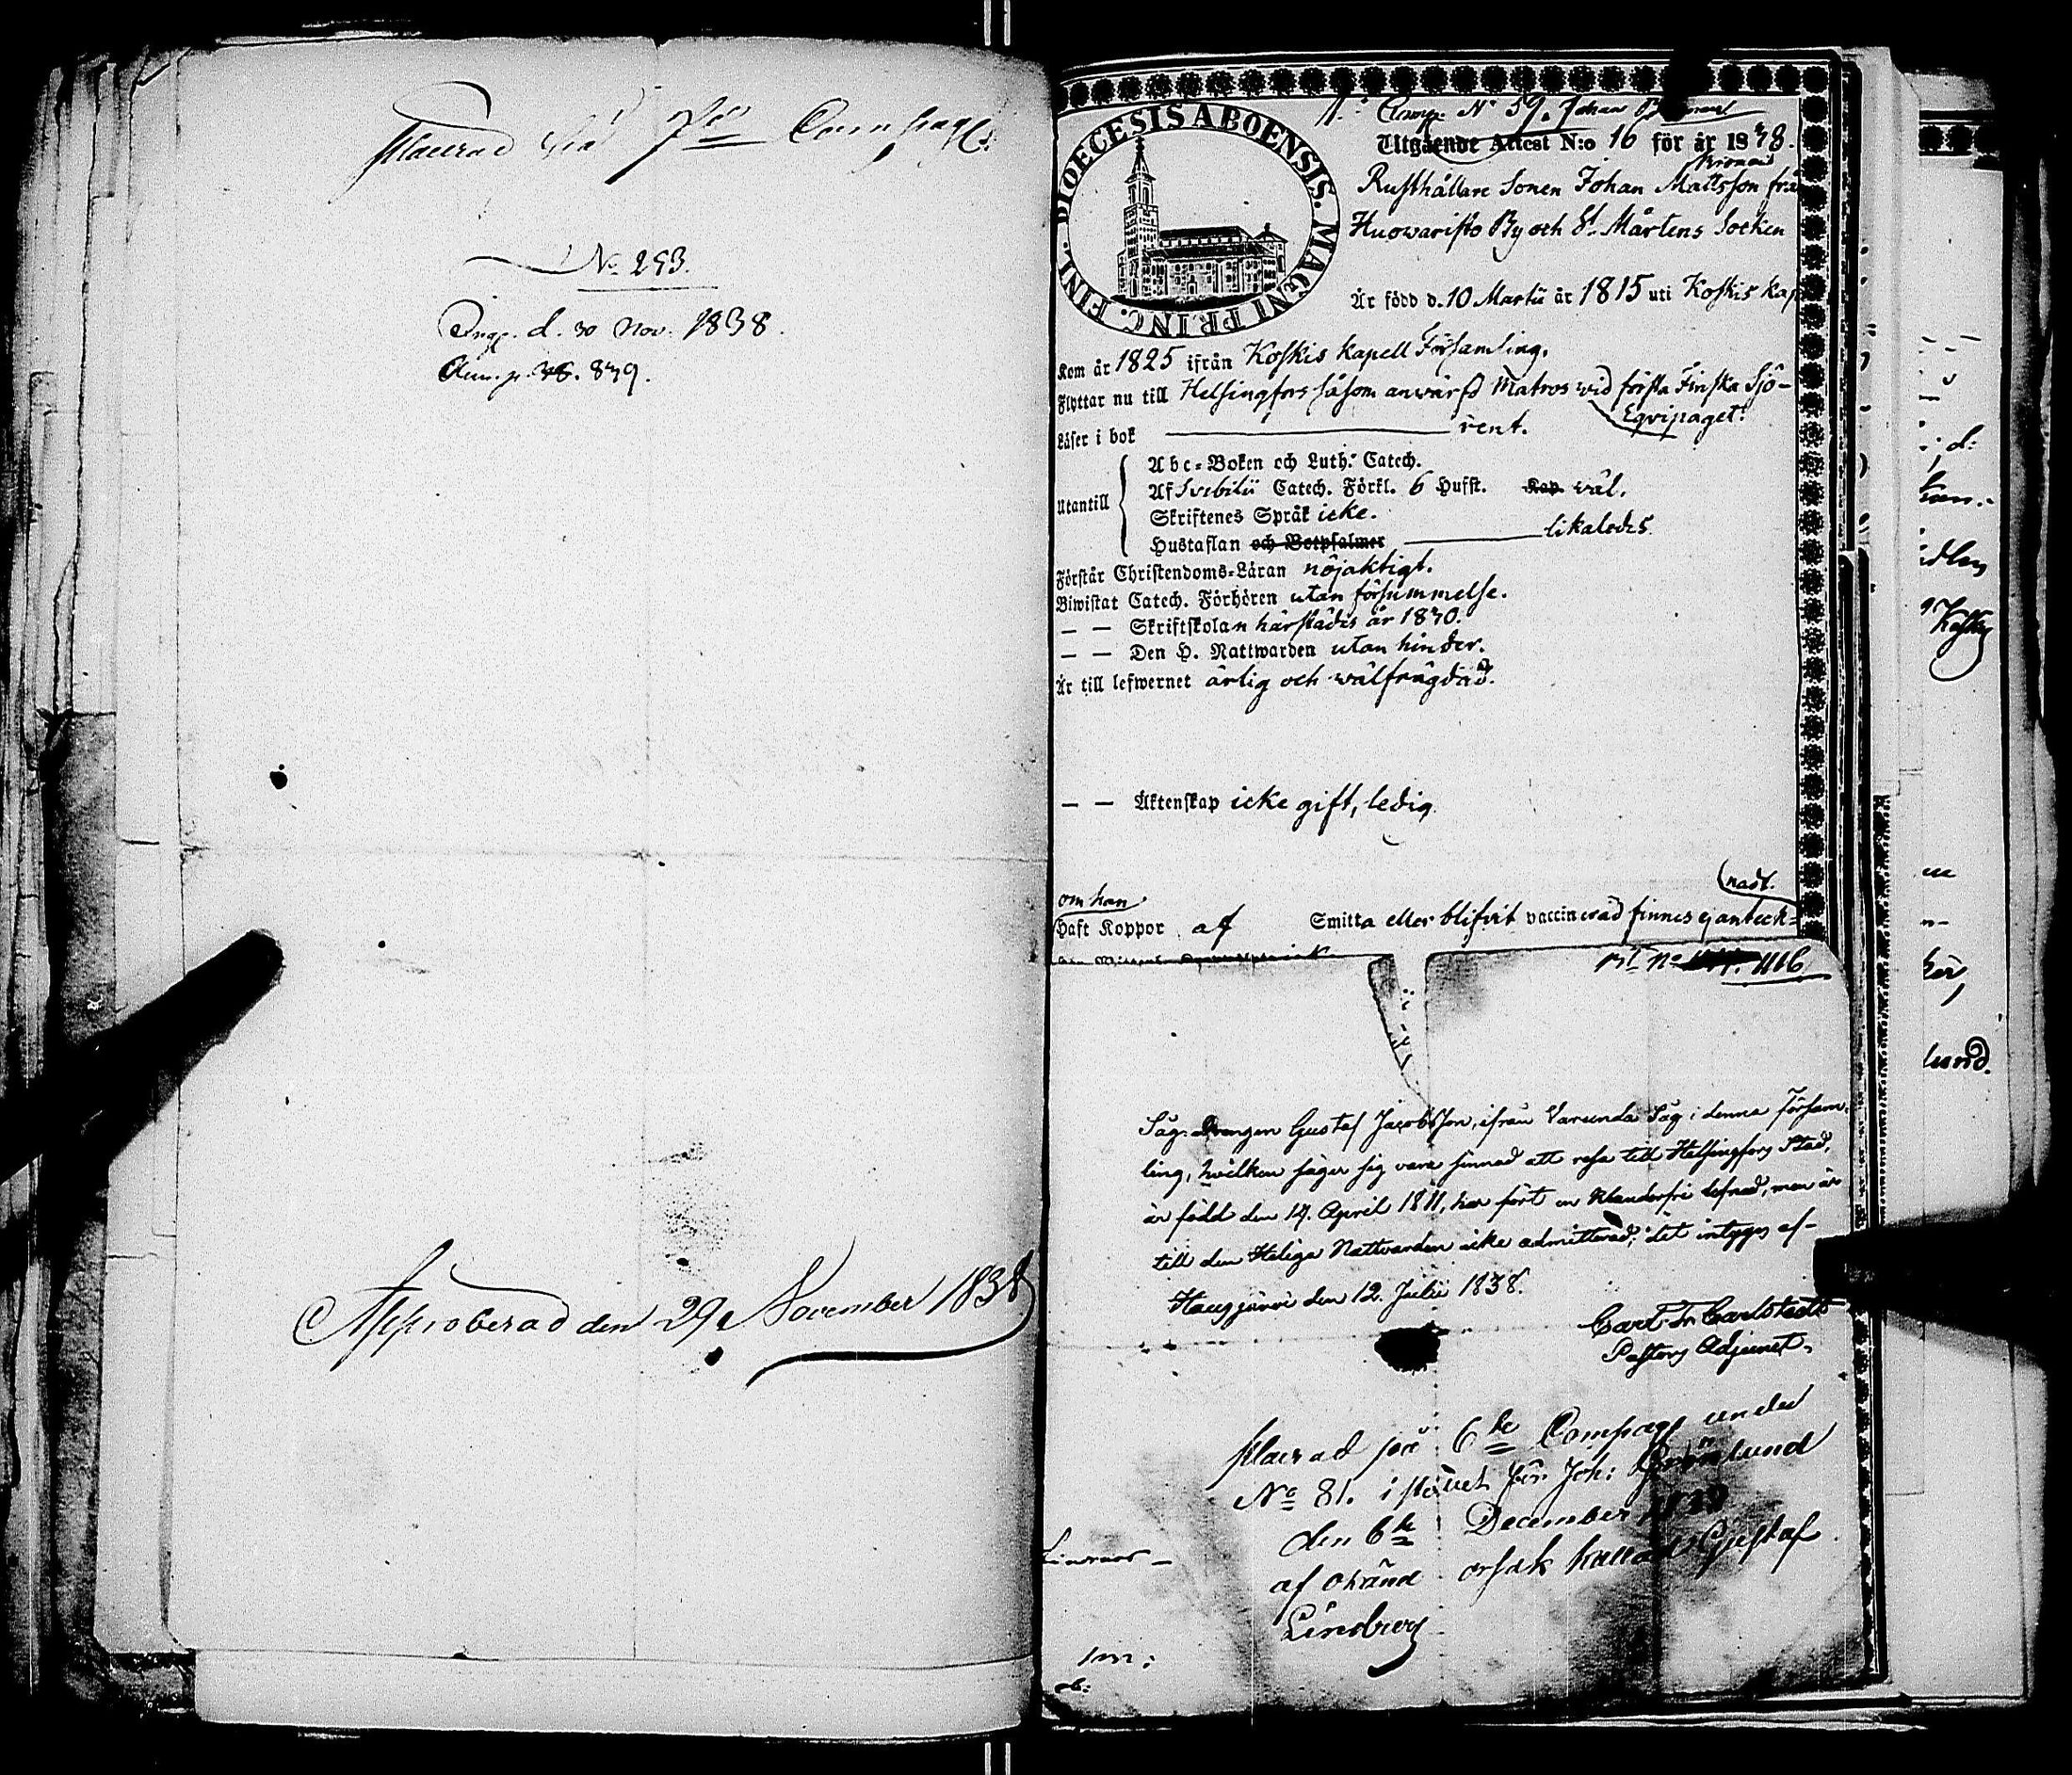 placerad på 7de Compagt:
No 293.
Ingf. d. 30 Nov. 1838.
839.
Approberad den 29 November 1838
DIOECESIS ABOENSIS. MAGNI PRINC. FINL.
Comp. No 59. Johan
Utgående Attest N:o 16 för år 1838.
Rusthållare Sonen Johan Mattsson från
Huowaristo By och St. Mårtens Socken
Är född d. 10 Martii år 1815 uti Koskis kap
Kom år 1825 ifrån Koskis kapell Församling.
Flyttar nu till Helsingfors såsom anwärfd Matros wid första Finska Sjö-
Eqvipaget.
Läser i bok rent.
Utantill
Abc-Boken och Luth: Catech.
Af Svebilii Catech. Förkl. 6 Hufst. Kap. wäl.
Skriftenes Språk icke.
Hustaflan och Botpsalmer likaledes.
Förstår Christendoms-Läran nöjaktigt.
Biwistat Catech. Förhören utan försummelse.
— — Skriftskolan härstädes år 1830.
— — Den H. Nattwarden utan hinder.
Är till lefwernet ärlig och wälfrägdad.
— — Äktenskap icke gift, ledig.
nadt.
om han
Haft Koppor af Smitta eller blifvit vaccinerad finnes ej anteck-
No 1116
Såg-Drengen Gustaf Jacobsson, ifrån Varunda Såg i denna församling,
ling, hvilken säger sig vara sinnad att resa till Helsingfors Stad,
är född den 14. April 1811, har fört en klanderfri lefnad, men är
till den Heliga Nattvarden icke admitterad; det intygas af-
Hausjärvi den 12. Julii 1838.
Carl Fr Carlstedt
Pastors Adjunct.
placerad på 6te Compagt under
No 81. i stället för Joh: Grönlund
den 6te December 1838
af okänd orsak kallad Gustaf
Lindberg